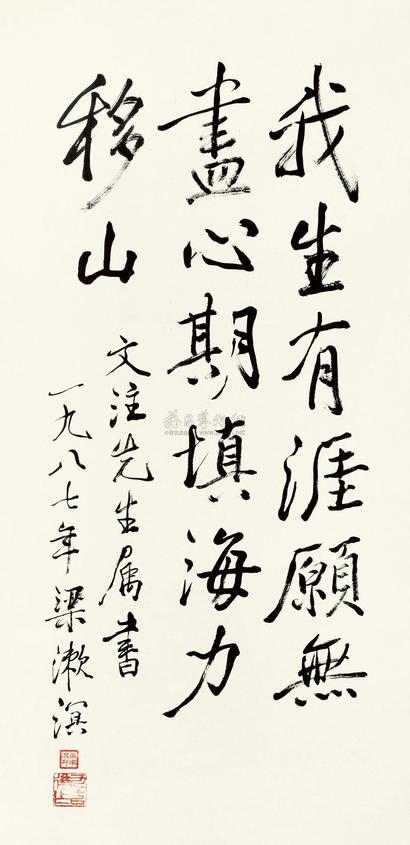 我生有涯願無
盡心期填海力
移山
文注先生属書
一九八七年梁漱溟